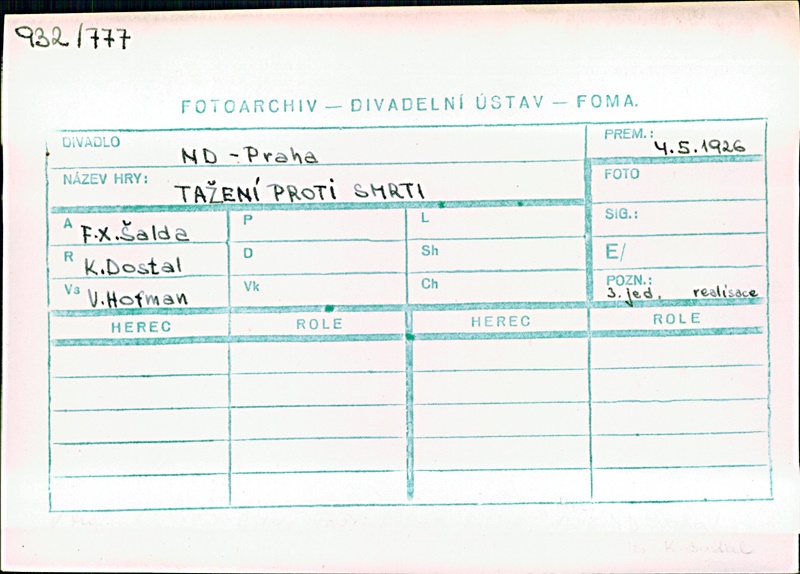 932/777
FOTOARCHIV — DIVADELNÍ ÚSTAV — FOMA.
DIVADLO ND - Praha
PREM.: 4.5.1926
NÁZEV HRY: TAŽENÍ PROTI SMRTI
FOTO
A F.X. Šalda P L
SIG.:
R K. Dostal D Sh
E/
Vs V. Hofman Vk Ch
POZN.: 3. jed. realisace
HEREC ROLE HEREC ROLE